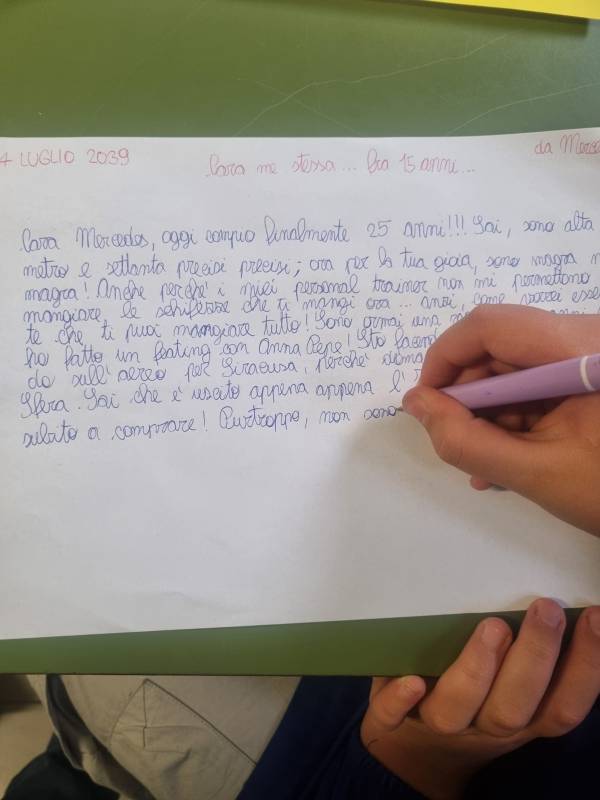 4 LUGLIO 2039
Cara me stessa... tra 15 anni...
da Merce
Cara Mercedes, oggi compio finalmente 25 anni!!! Sai, sono alta
metro e settanta precisi precisi; ora per la tua gioia, sono magra
magra! Anche perché i miei personal trainer non mi permettono
mangiare le schifezze che ti mangi ora... anzi, come vorrei esse
te che ti puoi mangiare tutto! Sono ormai una
ho fatto un feating con Anna Pepe! Sto facen
do sull'aereo per Siracusa, perché
Sfera. Sai che è uscito appena appena l'
subito a comprare! Purtroppo, non sono